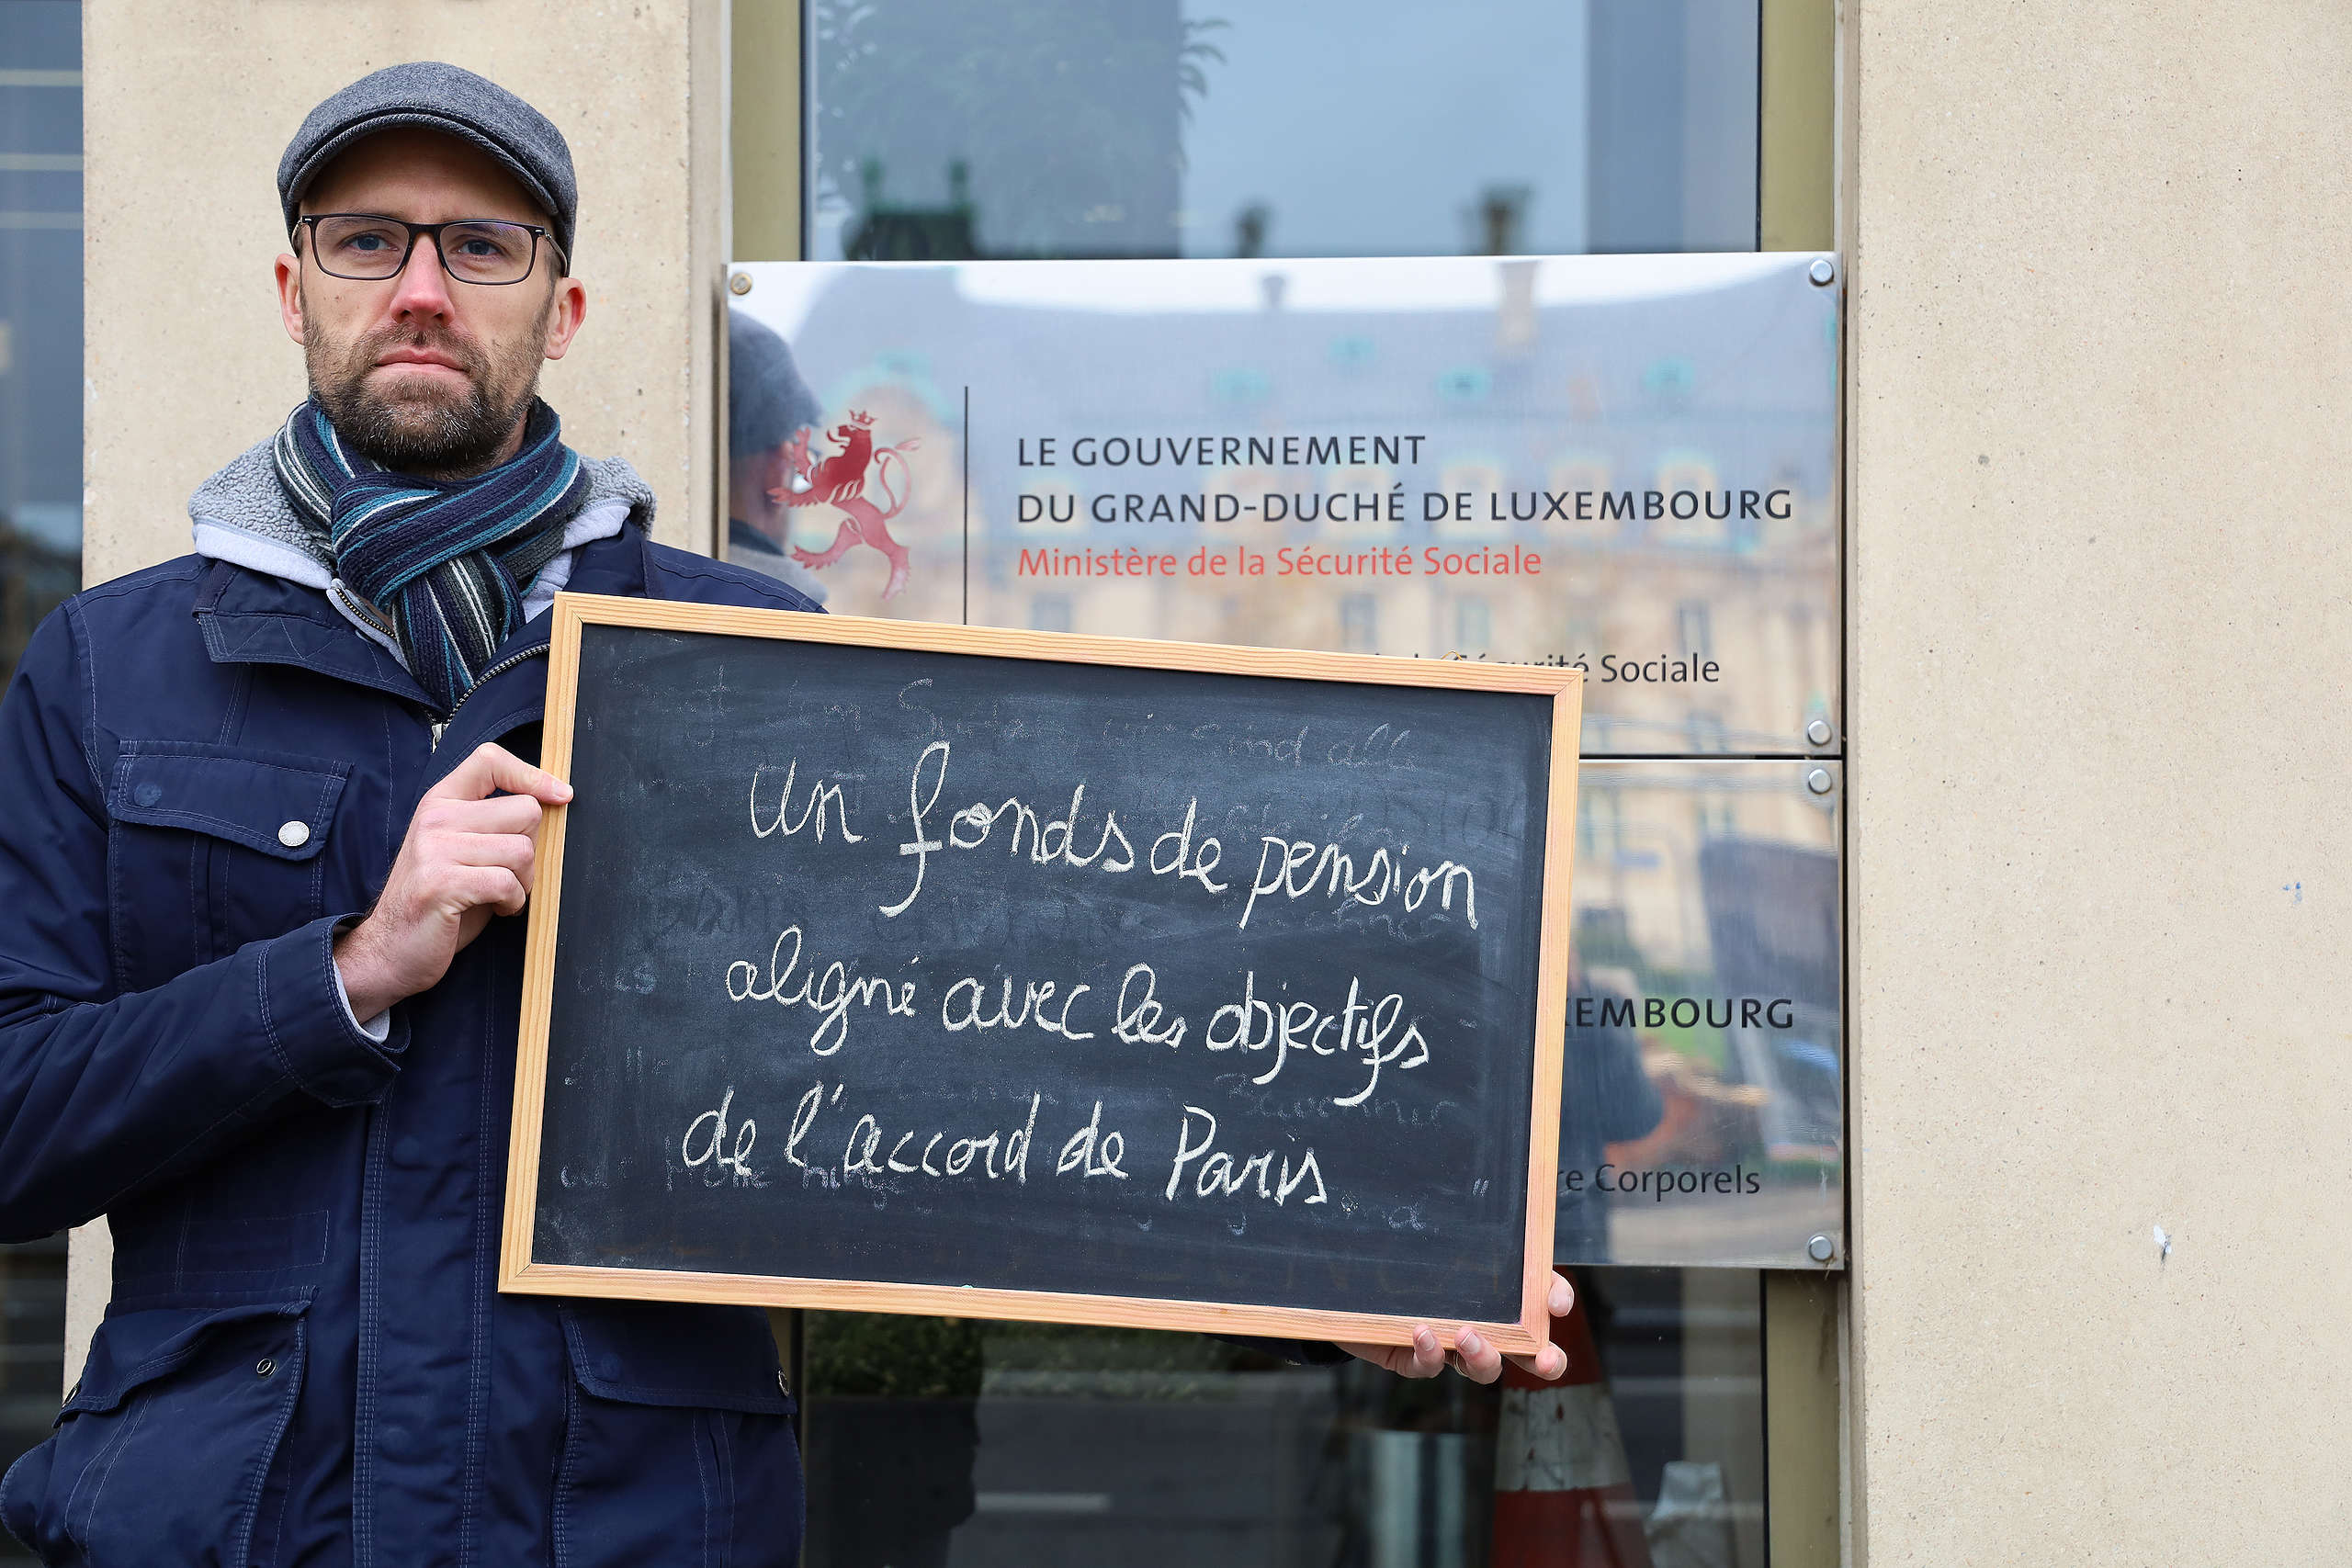 LE GOUVERNEMENT
DU GRAND-DUCHÉ DE LUXEMBOURG
Ministère de la Sécurité Sociale
Sécurité Sociale
Un fonds de pension
aligné avec les objectifs
de l'accord de Paris
EMBOURG
re Corporels